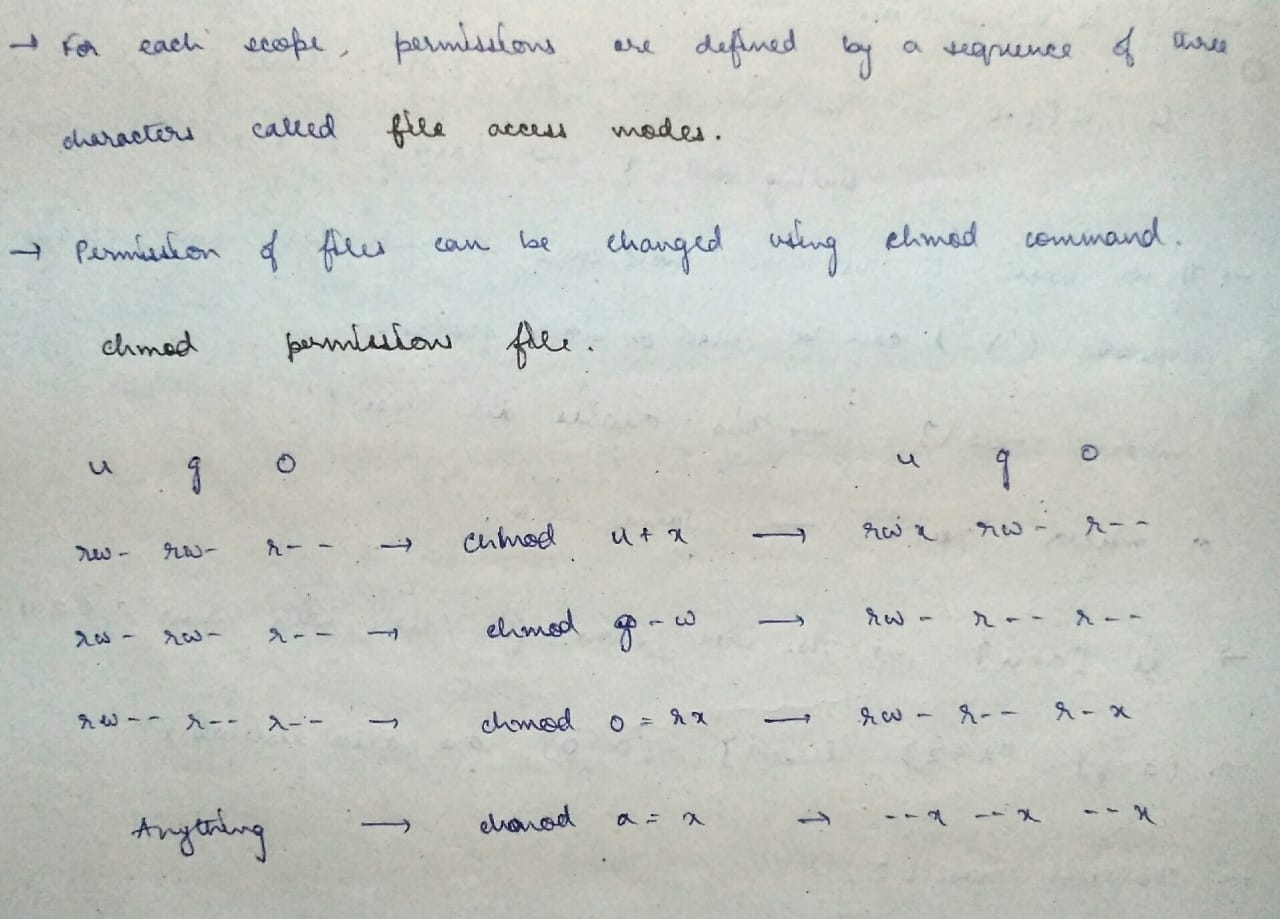 → For each scope, permissions are defined by a sequence of three
characters called file access modes.
→ Permission of files can be changed using chmod command.
chmod permission file.
u g o u g o
rw- rw- r-- → chmod u+x → rwx rw- r--
rw- rw- r-- → chmod g-w → rw- r-- r--
rw-- r-- r-- → chmod o=rx → rw- r-- r-x
Anything → chmod a=x → --x --x --x